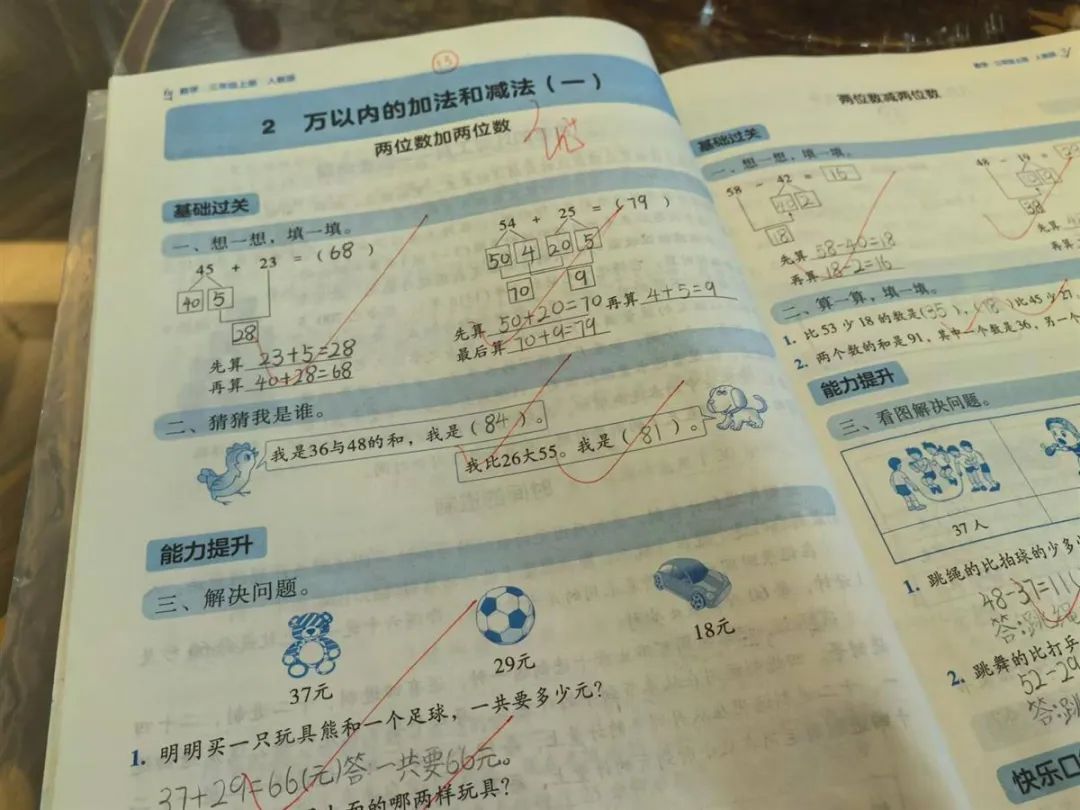 数学 三年级上册 人教版
2 万以内的加法和减法（一）
两位数加两位数
基础过关
一、想一想，填一填。
45 + 23 = (68)
40 5
28
先算 23+5=28
再算 40+28=68
54 + 25 = (79)
50 4 20 5
70 9
先算 50+20=70 再算 4+5=9
最后算 70+9=79
二、猜猜我是谁。
我是36与48的和，我是(84)。
我比26大55。我是(81)。
能力提升
三、解决问题。
37元
29元
18元
1. 明明买一只玩具熊和一个足球，一共要多少元？
37+29=66(元)答:一共要66元。
面的哪两样玩具？
两位数减两位数
基础过关
一、想一想，填一填。
58 - 42 = 16
18
先算 58-40=18
再算 18-2=16
48 - 19 =
38
先算
再算
二、算一算，填一填。
1. 比53少18的数是(35)，(18)比45少27。
2. 两个数的和是91，其中一个数是36，另一个
能力提升
三、看图解决问题。
37人
1. 跳绳的比拍球的少多少
48-37=11(
答:跳绳
2. 跳舞的比打乒
52-29
答:跳
快乐口